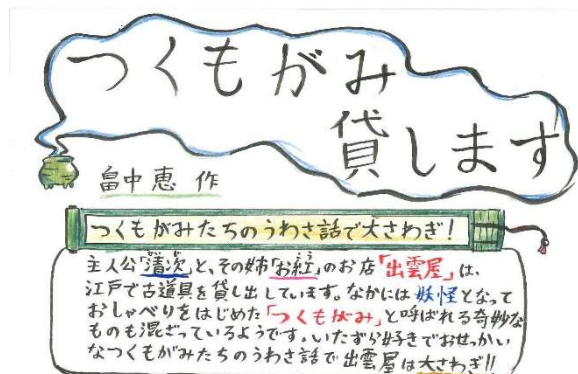 つくもがみ
貸します
畠中恵 作
つくもがみたちのうわさ話で大さわぎ!
主人公「清次」と、その姉「お紅」のお店「出雲屋」は、
江戸で古道具を貸し出しています。なかには妖怪となって
おしゃべりをはじめた「つくもがみ」と呼ばれる奇妙な
ものも混ざっているようです。いたずら好きでおせっかい
なつくもがみたちのうわさ話で出雲屋は大さわぎ!!